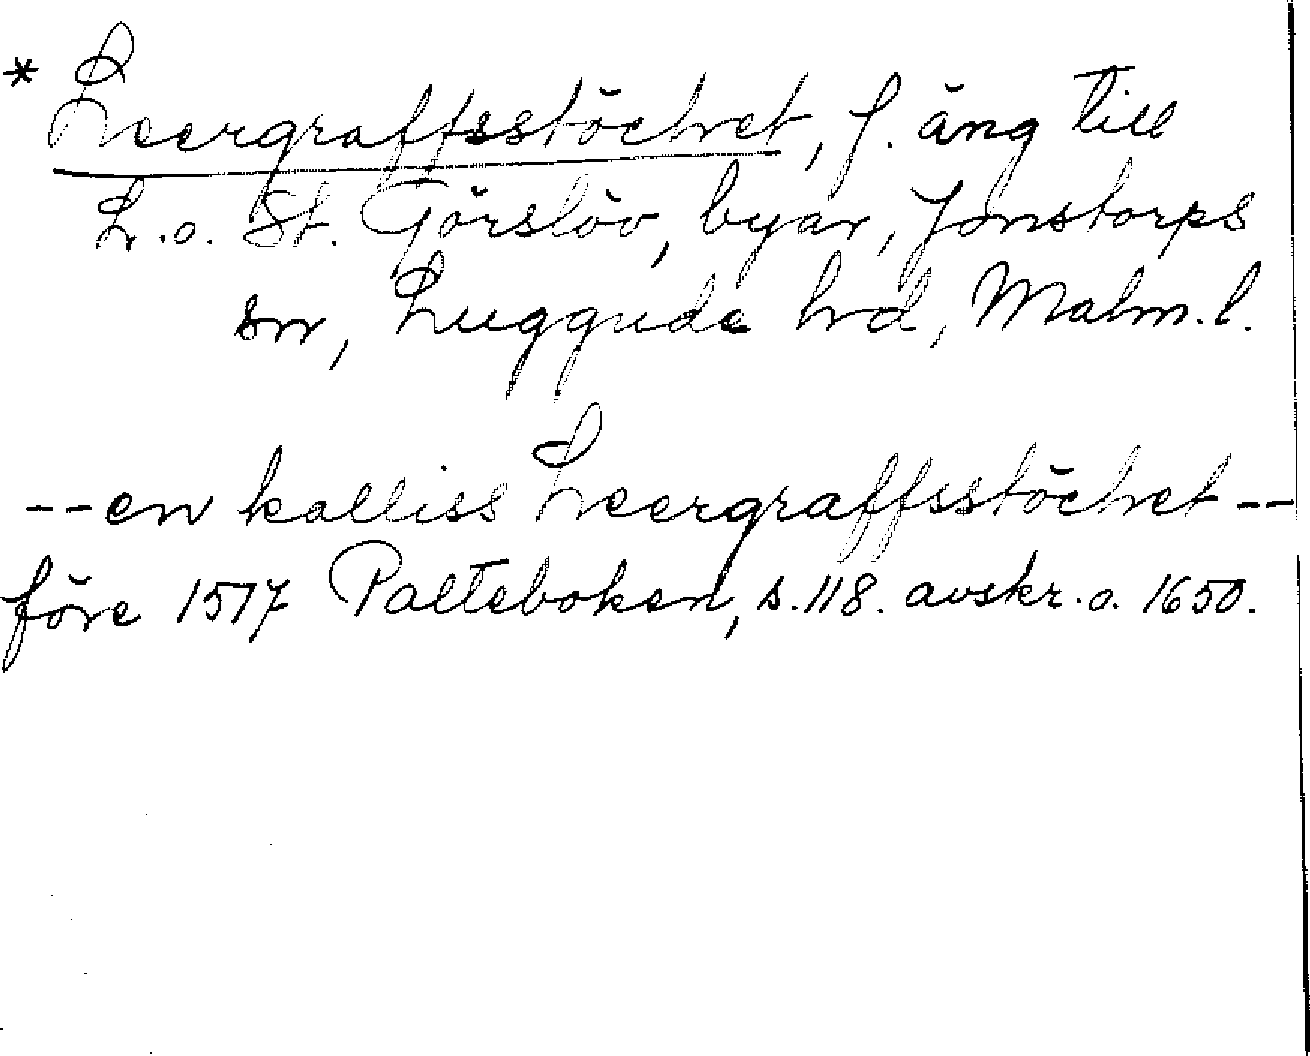 * Leergraffsstöchet, f. äng till
L. o. St. Görslöv, byar, Jonstorps
sn, Luggude hd, Malm. l.
-- en kalliss Leergraffsstöchet --
före 1517 Palteboken, s. 118. avskr. o. 1650.